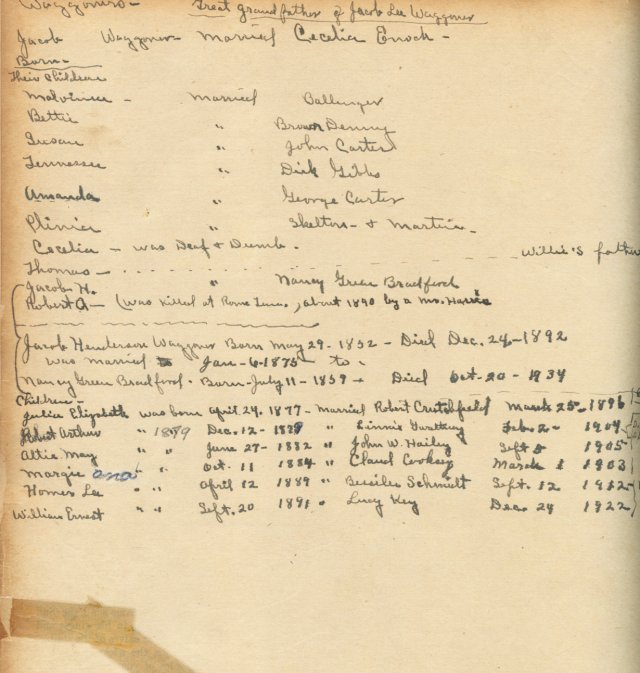 Waggoners - Great Grandfather of Jacob Lee Waggoner
Jacob Waggoner Married Cecelia Enoch -
Born -
Their Children
Malvinia - married Ballinger
Bettie " Brown Denny
Susan " John Carter
Tennessee " Dick Gibbs
Amanda " George Carter
Plinia " Skelton - & Martin -
Cecelia - was Deaf & Dumb.
Thomas - Willie's father
Jacob H. " Nancy Green Bradford
Robert A - (was killed at Rome Tenn., about 1890 by a Mr. Harris
Jacob Henderson Waggoner Born May 29 - 1852 - Died Dec. 24 - 1892
was married Jan - 6 - 1875 to -
Nancy Green Bradford - Born - July 11 - 1859 + Died Oct - 20 - 1934
Children -
Julia Elizabeth was born April 24, 1877 - Married Robert Crutchfield March 25 - 1896
Robert Arthur " 1879 Dec. 12 - " Linnie Feb. 2 - 1904
Altie May " " June 27 - 1882 " John W. Hailey Sept 5 1905
Margie ana " " Oct. 11 1884 " Claud Cooksey March 1 1903
Homer Lee " " April 12 1889 " Bessiles Schmidt Sept. 12 1912
William Ernest " " Sept. 20 1891 " Lucy Key Dec. 24 1922